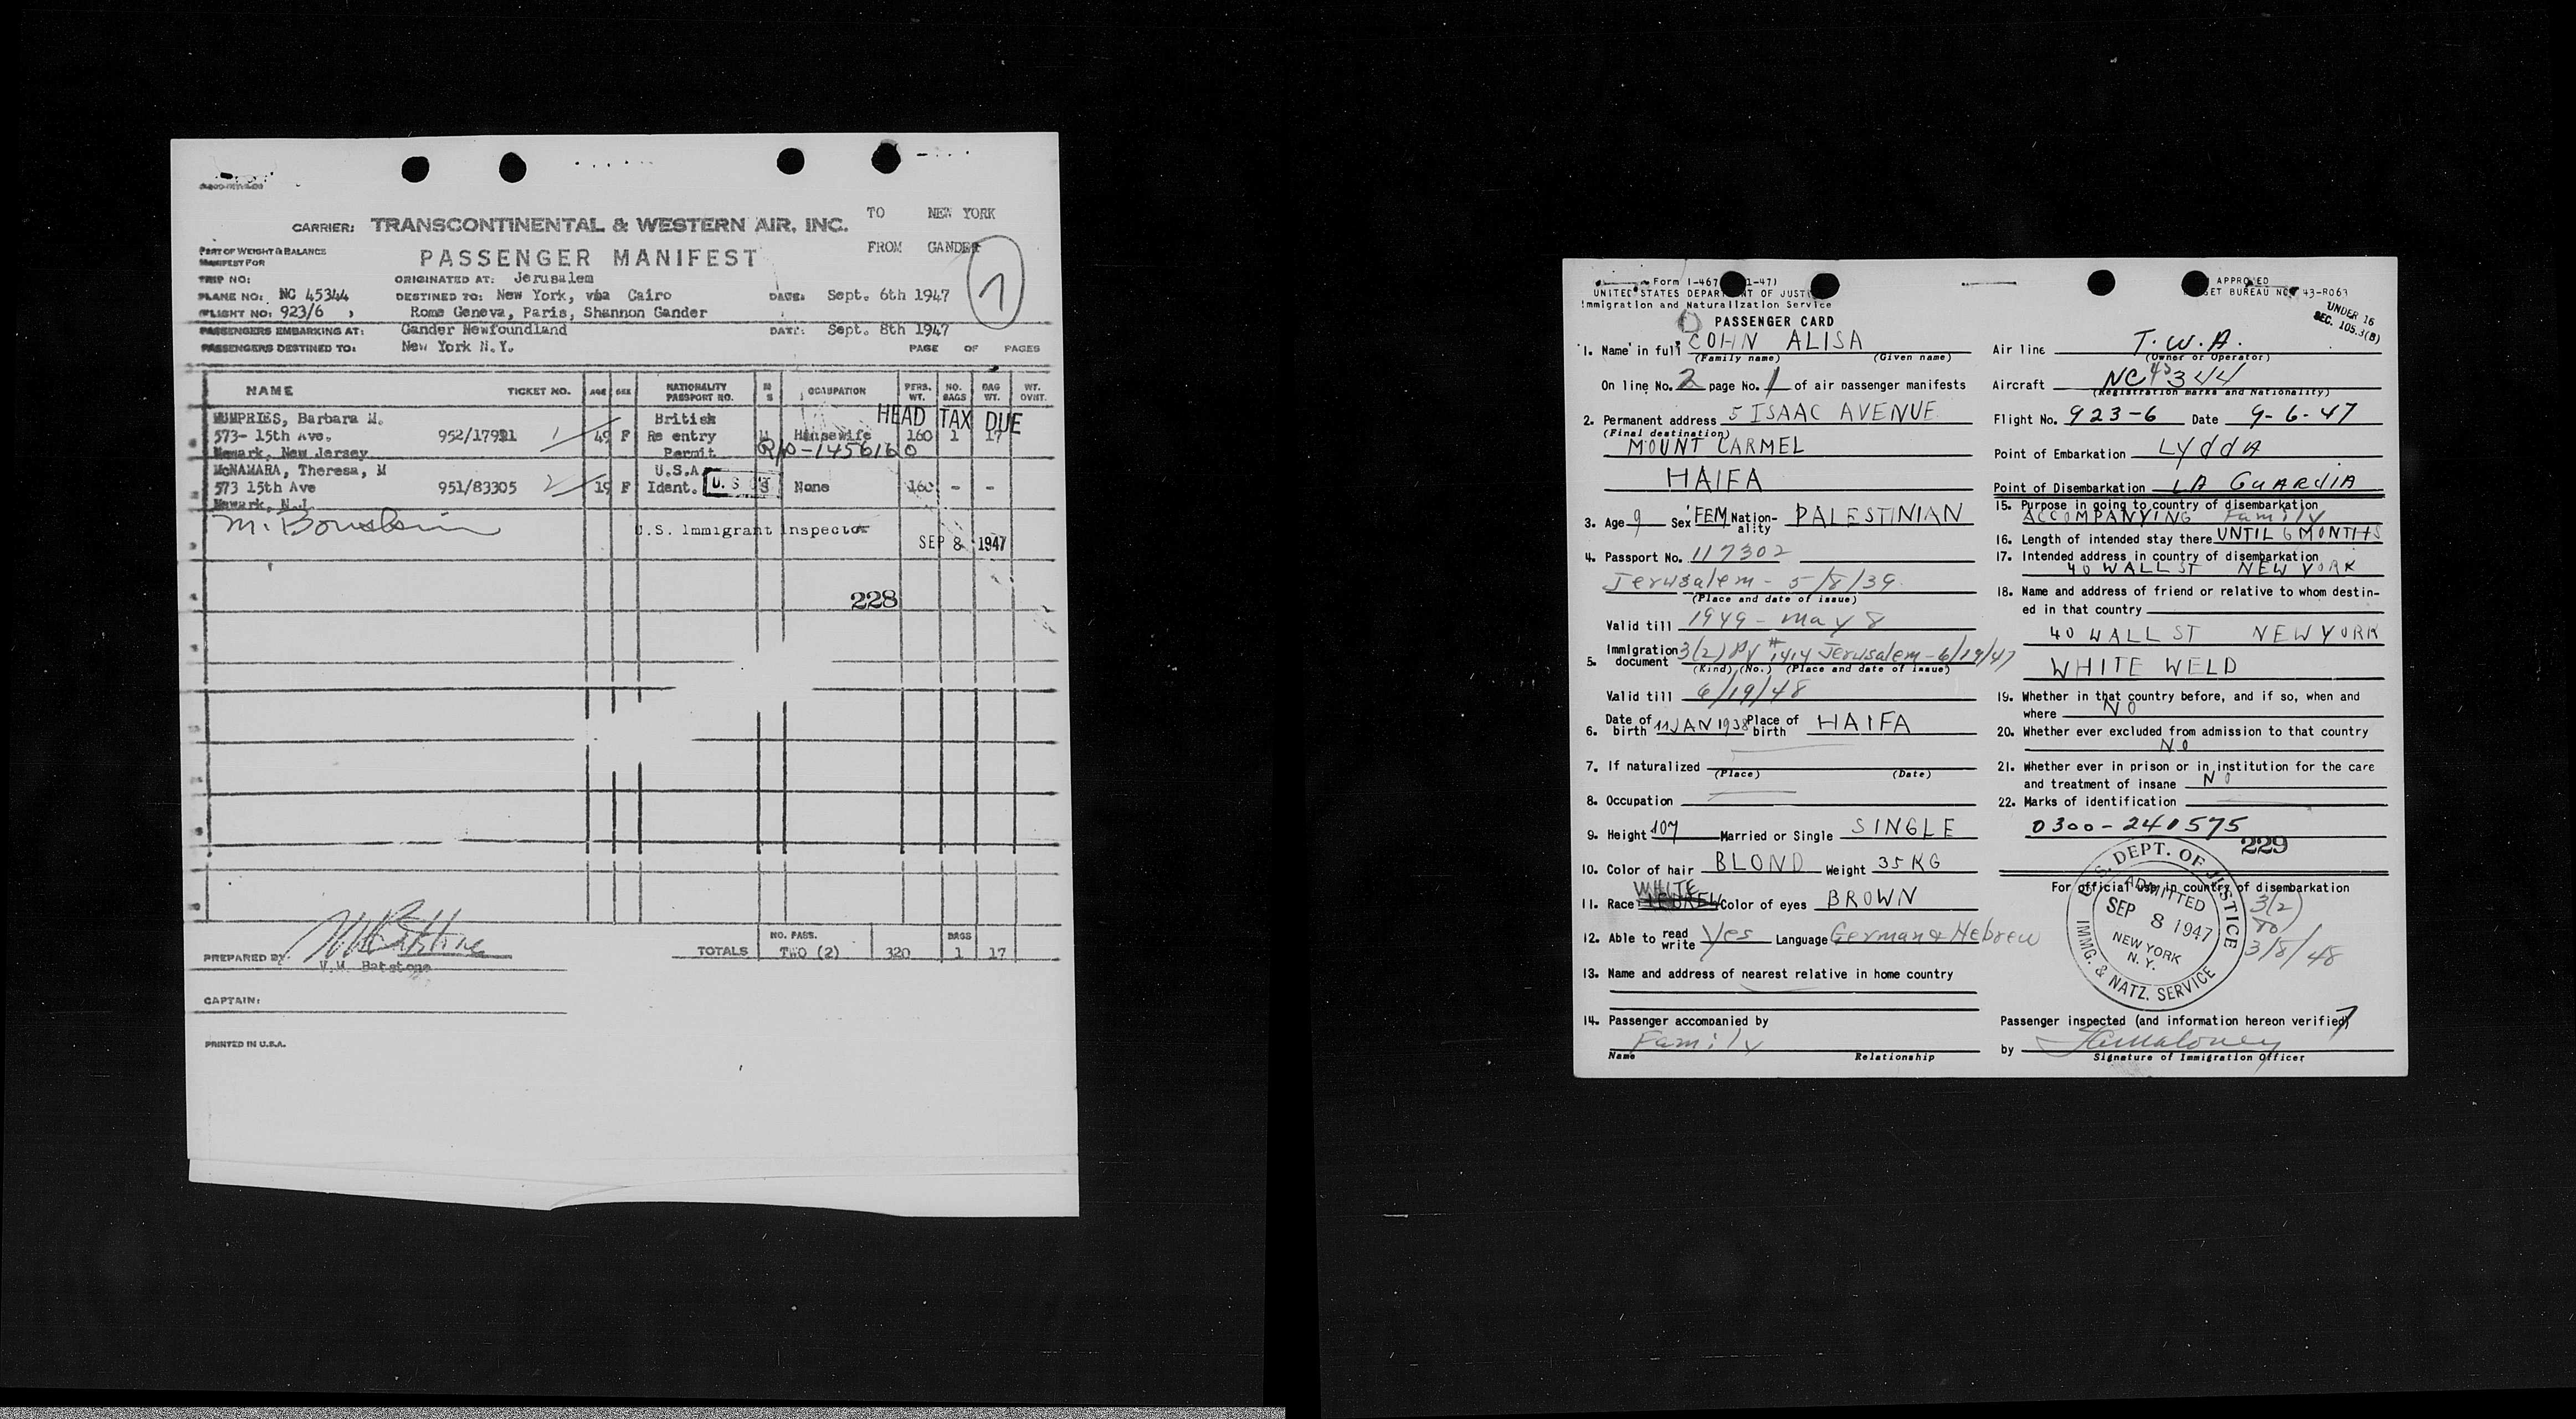 TO NEW YORK
CARRIER: TRANSCONTINENTAL & WESTERN AIR, INC.
FROM GANDER
PART OF WEIGHT & BALANCE
MANIFEST FOR
PASSENGER MANIFEST
1
TRIP NO: ORIGINATED AT: Jerusalem
PLANE NO: NC 45344 DESTINED TO: New York, via Cairo DATE: Sept. 6th 1947
FLIGHT NO: 923/6 , Rome Geneva, Paris, Shannon Gander
PASSENGERS EMBARKING AT: Gander Newfoundland DATE: Sept. 8th 1947
PASSENGERS DESTINED TO: New York N.Y. PAGE OF PAGES
NAME TICKET NO. AGE SEX NATIONALITY PASSPORT NO. M S OCCUPATION PERS. WT. NO. BAGS BAG WT. WT. OVHT.
HEAD TAX DUE
MUMPRIES, Barbara M. British
573- 15th Ave. 952/17991 1 49 F Re entry M Housewife 160 1 17
Newark, New Jersey Permit R/P-1456160
McNAMARA, Theresa, M U.S.A.
573 15th Ave 951/83305 2 19 F Ident. U. S. S None 160 - -
Newark, N.J.
M. Bornstein U.S. Immigrant Inspector
SEP 8 1947
228
NO. PASS. BAGS
TOTALS TWO (2) 320 1 17
PREPARED BY: V.M. Batstone
V.M. Batstone
CAPTAIN:
PRINTED IN U.S.A.
Form I-467
UNITED STATES DEPARTMENT OF JUSTICE
Immigration and Naturalization Service
PASSENGER CARD
APPROVED
BUDGET BUREAU NO. 43-R063
UNDER 16
SEC. 105.3(B)
1. Name in full COHN ALISA
(Family name) (Given name)
On line No. 2 page No. 1 of air passenger manifests
2. Permanent address 5 ISAAC AVENUE
(Final destination)
MOUNT CARMEL
HAIFA
3. Age 9 Sex FEM Nationality PALESTINIAN
4. Passport No. 117302
Jerusalem - 5/8/39
(Place and date of issue)
Valid till 1949 - May 8
5. Immigration document 3(2) PV #1414 Jerusalem - 6/19/47
(Kind) (No.) (Place and date of issue)
Valid till 6/19/48
6. Date of birth 11 JAN 1938 Place of birth HAIFA
7. If naturalized
(Place) (Date)
8. Occupation
9. Height 107 Married or Single SINGLE
10. Color of hair BLOND Weight 35 KG
11. Race WHITE Color of eyes BROWN
12. Able to read write Yes Language German & Hebrew
13. Name and address of nearest relative in home country
14. Passenger accompanied by
Family
Name Relationship
Air line T.W.A.
(Owner or Operator)
Aircraft NC 45344
(Registration marks and Nationality)
Flight No. 923-6 Date 9-6-47
Point of Embarkation LyddA
Point of Disembarkation LA GUARdIA
15. Purpose in going to country of disembarkation
ACCOMPANYING Family
16. Length of intended stay there UNTIL 6 MONTHS
17. Intended address in country of disembarkation
40 WALL ST NEW YORK
18. Name and address of friend or relative to whom destin-
ed in that country
40 WALL ST NEW YORK
WHITE WELD
19. Whether in that country before, and if so, when and
where NO
20. Whether ever excluded from admission to that country
NO
21. Whether ever in prison or in institution for the care
and treatment of insane NO
22. Marks of identification
0300-240575
229
For official use in country of disembarkation
U. S. DEPT. OF JUSTICE
ADMITTED
SEP 8 1947
NEW YORK
N. Y.
IMMG. & NATZ. SERVICE
3(2)
to
3/8/48
Passenger inspected (and information hereon verified)
by
Signature of Immigration Officer